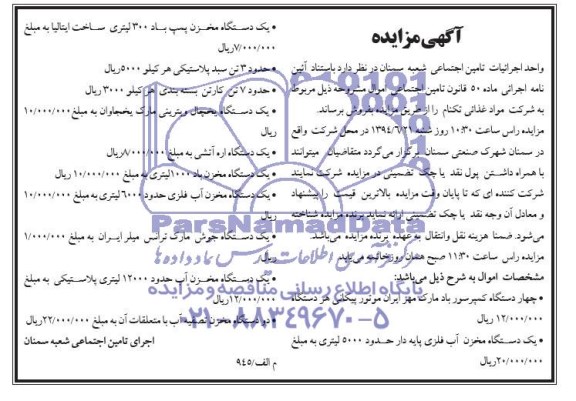 آگهی مزایده
واحد اجرائیات تامین اجتماعی شعبه سمنان در نظر دارد باستناد آئین
نامه اجرائی ماده ۵۰ قانون تامین اجتماعی اموال مشروحه ذیل مربوط
به شرکت مواد غذائی تکنام را از طریق مزایده بفروش برساند.
مزایده راس ساعت ۱۰:۳۰ روز شنبه ۱۳۹۴/۶/۲۱ در محل شرکت واقع
در سمنان شهرک صنعتی سمنان برگزار می گردد متقاضیان میتوانند
با همراه داشتن پول نقد یا چک تضمینی در مزایده شرکت نمایند
شرکت کننده ای که تا پایان وقت مزایده بالاترین قیمت را پیشنهاد
و معادل آن وجه نقد یا چک تضمینی ارائه نماید برنده مزایده شناخته
می شود. ضمنا هزینه نقل وانتقال به عهده برنده مزایده می باشد.
مزایده راس ساعت ۱۱:۳۰ صبح همان روز خاتمه می یابد
مشخصات اموال به شرح ذیل می باشد:
• چهار دستگاه کمپرسور باد مارک مهر ایران موتور پیکلی هر دستگاه
۱۲/۰۰۰/۰۰۰ ریال
• یک دستگاه مخزن آب فلزی پایه دار حدود ۵۰۰۰ لیتری به مبلغ
۲۰/۰۰۰/۰۰۰ریال
• یک دستگاه مخزن پمپ باد ۳۰۰ لیتری ساخت ایتالیا به مبلغ
۷/۰۰۰/۰۰۰ریال
• حدود ۳ تن سبد پلاستیکی هر کیلو ۵۰۰۰ریال
• حدود ۷ تن کارتن بسته بندی هر کیلو ۳۰۰۰ ریال
• یک دستگاه یخچال ویترینی مارک یخچاوان به مبلغ ۱۰/۰۰۰/۰۰۰
ریال
• یک دستگاه اره آتشی به مبلغ ۸/۰۰۰/۰۰۰ریال
• یک دستگاه مخزن باد ۱۰۰۰لیتری به مبلغ ۱۰/۰۰۰/۰۰۰ ریال
• یک دستگاه مخزن آب فلزی حدود ۶۰۰۰ لیتری به مبلغ ۱۰/۰۰۰/۰۰۰
ریال
• یک دستگاه جوش مارک ترانس میلر ایران به مبلغ ۱/۰۰۰/۰۰۰
ریال
• یک دستگاه مخزن آب حدود ۱۲۰۰۰ لیتری پلاستیکی به مبلغ
۱۲/۰۰۰/۰۰۰ریال
• دو دستگاه مخزن تصفیه آب با متعلقات آن به مبلغ ۲۲/۰۰۰/۰۰۰ریال
اجرای تامین اجتماعی شعبه سمنان
م الف/۹۴۵
ParsNamadData
پایگاه اطلاع رسانی مناقصه و مزایده
۰۲۱-۸۸۳۴۹۶۷۰-۵